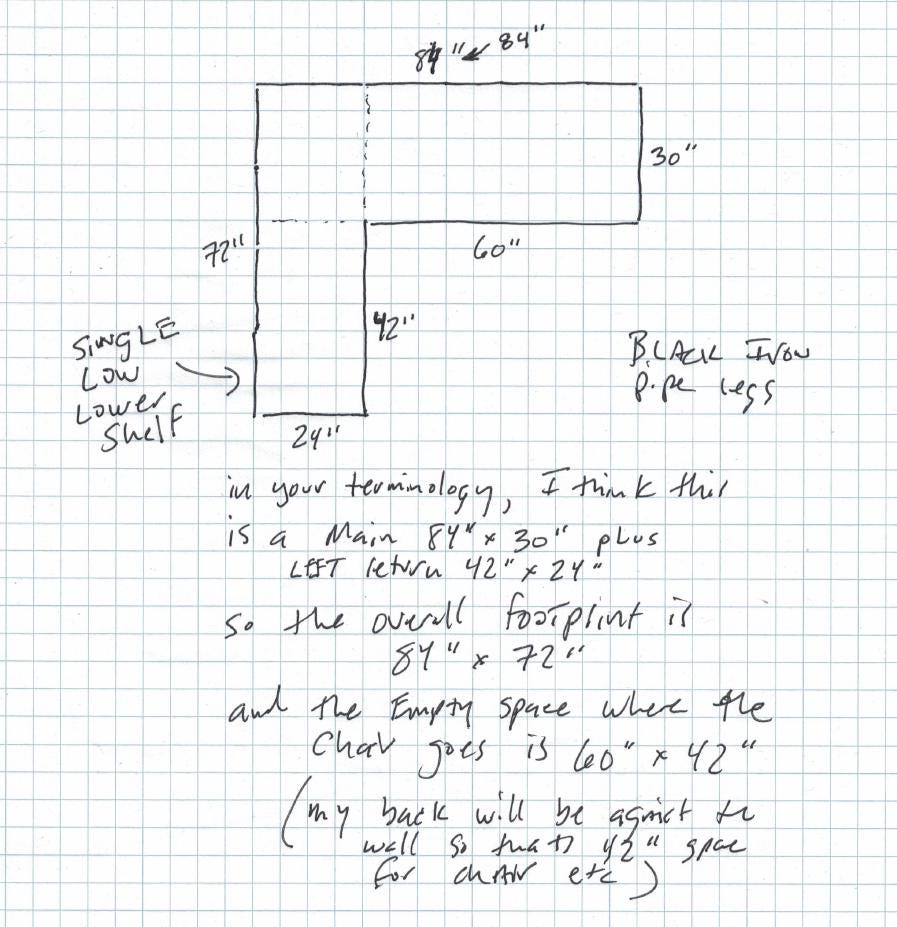 84" 84"
30"
72"
60"
42"
SINGLE
Low
Lower
Shelf
BLACK Iron
Pipe legs
24"
in your terminology, I think this
is a Main 84" x 30" plus
LEFT return 42" x 24"
so the overall footprint is
84" x 72"
and the Empty space where the
Chair goes is 60" x 42"
(my back will be against the
wall so that's 42" space
for chair etc)